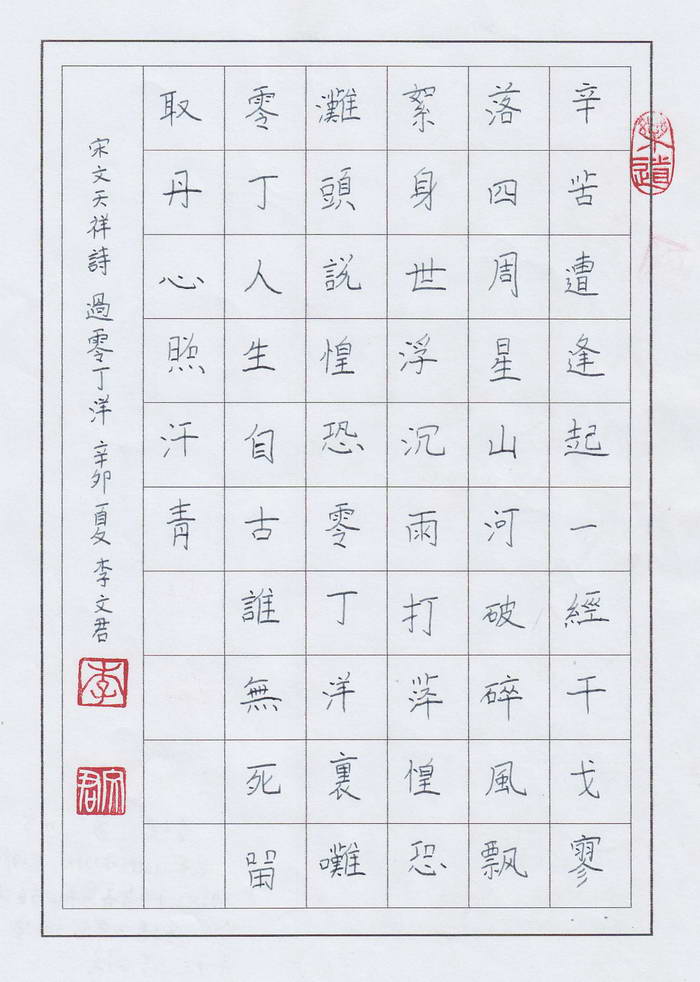 辛苦遭逢起一經干戈寥
落四周星山河破碎風飄
絮身世浮沉雨打萍惶恐
灘頭說惶恐零丁洋裏
零丁人生自古誰無死留
取丹心照汗青
宋文天祥詩 過零丁洋 辛卯夏 李文君
李
文君